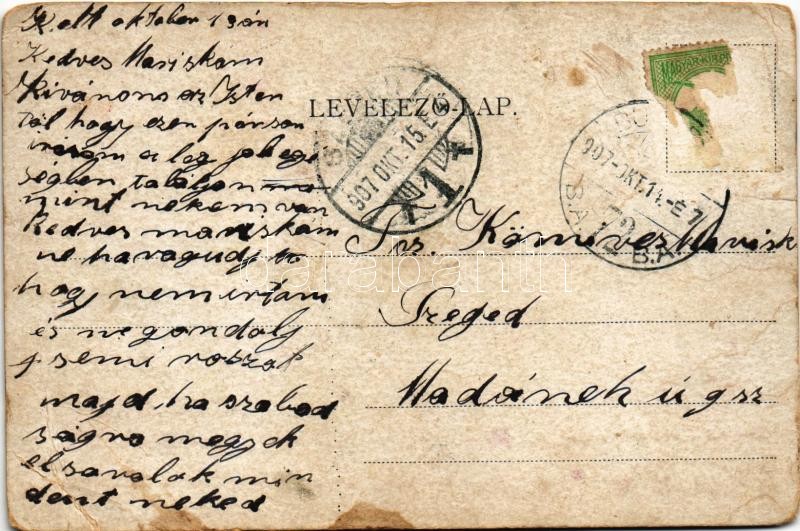 Kelt oktober 13án
Kedves Mariskám
Kivánom az Isten
től hogy ezen pár sor
irásom a leg job ege
ségben találjon
mint nekem van
Kedves mariskám
ne haragudj
hogy nem irtam
és ne gondolj
semi roszat
majd ha szabad
ságra megyek
el sorolok min
dent neked
LEVELEZŐ-LAP.
MAGYAR KIR.
907 OKT. 15.
907-OKT.14.-É7
B.A.
Kőmives Marisk
Szeged
u 9 sz
darabanth